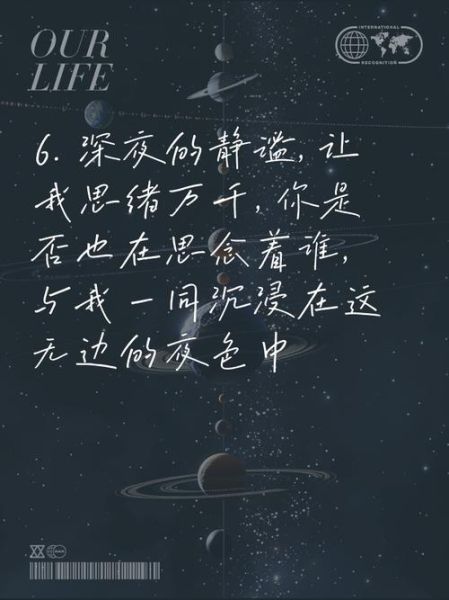 OUR
LIFE
INTERNATIONAL
RECOGNITION
6. 深夜的静谧, 让
我思绪万千, 你是
否也在思念着谁,
与我一同沉浸在这
无边的夜色中